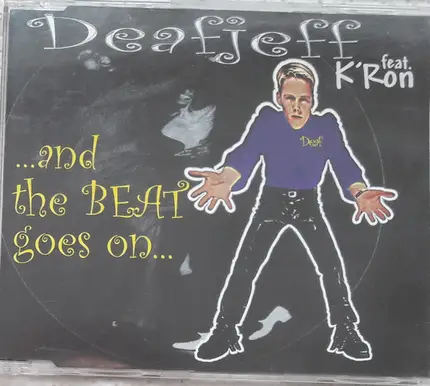 Deafjeff
feat.
K'Ron
Deaf
...and
the BEAT
goes on...